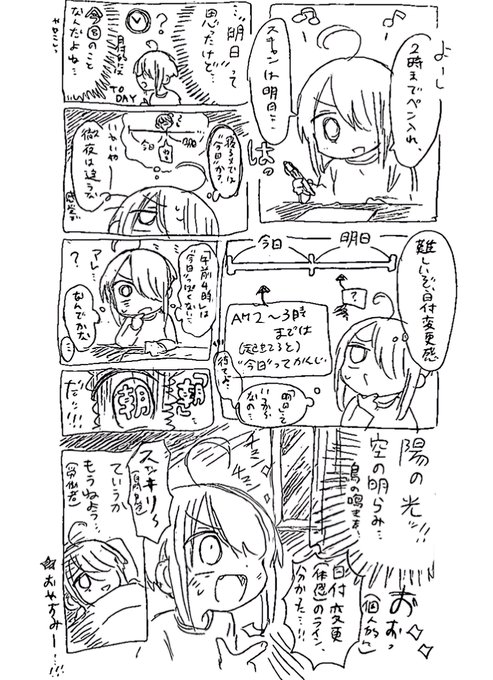 よーし
2時までペン入れ、
スキャンは明日…
はっ
…"明日"って
思ったけど…
今日のこと
なんだよな…
?
TO DAY
今日
徹夜は違うな
難しいぞ、日付変更感
今日
明日
?
AM2～3時
までは
(起きてると)
"今日"ってかんじ
待てよ
明日って
いつから
なの
午前4時は
"今日"っぽくない…
アレ…
?
なんでかな
朝
だ…!!!
陽の光…!!
空の明らみ…
鳥の鳴き声
おおっ
(個人的に)
日付変更
(体感)のライン、
分かった…!!
チュン
チュン
スッキリ～
ていうか
もうねよう…
☆おやすみー…!!!